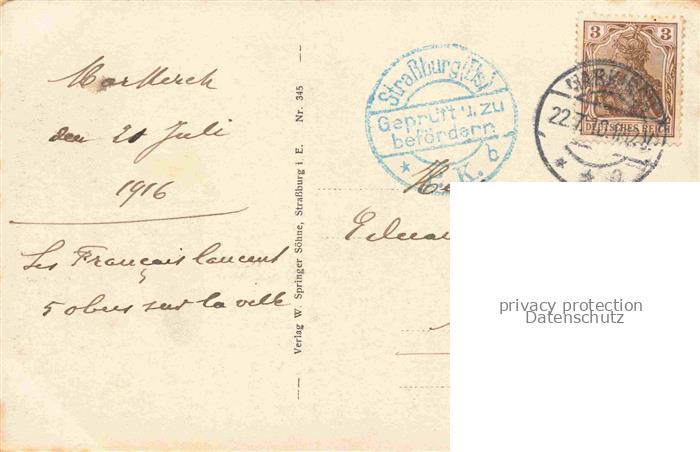 Markirch
den 21 Juli
1916
Les Français lancent
5 obus sur la ville
Verlag W. Springer Söhne, Straßburg i E. Nr. 345
Straßburg (Els)
Geprüft u. zu
befördern
K. b
3 3
DEUTSCHES REICH
MARKIRCH
22.7.
privacy protection
Datenschutz